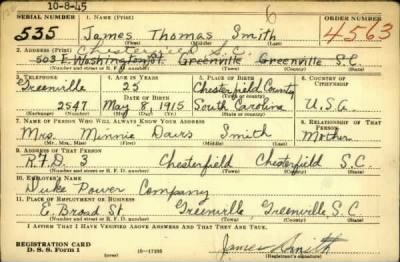 10-8-45
SERIAL NUMBER 1. NAME (Print) 6 ORDER NUMBER
535 James Thomas Smith 4563
(First) (Middle) (Last)
2. ADDRESS (Print) Chesterfield S.C.
503 E. Washington St. Greenville Greenville S.C.
(Number and street or R. F. D. number) (Town) (County) (State)
3. TELEPHONE 4. AGE IN YEARS 5. PLACE OF BIRTH 6. COUNTRY OF CITIZENSHIP
Greenville 25 Chesterfield County
DATE OF BIRTH (Town or county)
2547 May 8, 1915 South Carolina U.S.A.
(Exchange) (Number) (Mo.) (Day) (Yr.) (State or country)
7. NAME OF PERSON WHO WILL ALWAYS KNOW YOUR ADDRESS 8. RELATIONSHIP OF THAT PERSON
Mrs. Minnie Davis Smith Mother
(Mr., Mrs., Miss) (First) (Middle) (Last)
9. ADDRESS OF THAT PERSON
R.F.D. 3 Chesterfield Chesterfield S.C.
(Number and street or R. F. D. number) (Town) (County) (State)
10. EMPLOYER'S NAME
Duke Power Company
11. PLACE OF EMPLOYMENT OR BUSINESS
E. Broad St Greenville, Greenville S.C
(Number and street or R. F. D. number) (Town) (County) (State)
I AFFIRM THAT I HAVE VERIFIED ABOVE ANSWERS AND THAT THEY ARE TRUE.
REGISTRATION CARD
D. S. S. Form 1 (over) 16—17105 James Smith
(Registrant's signature)